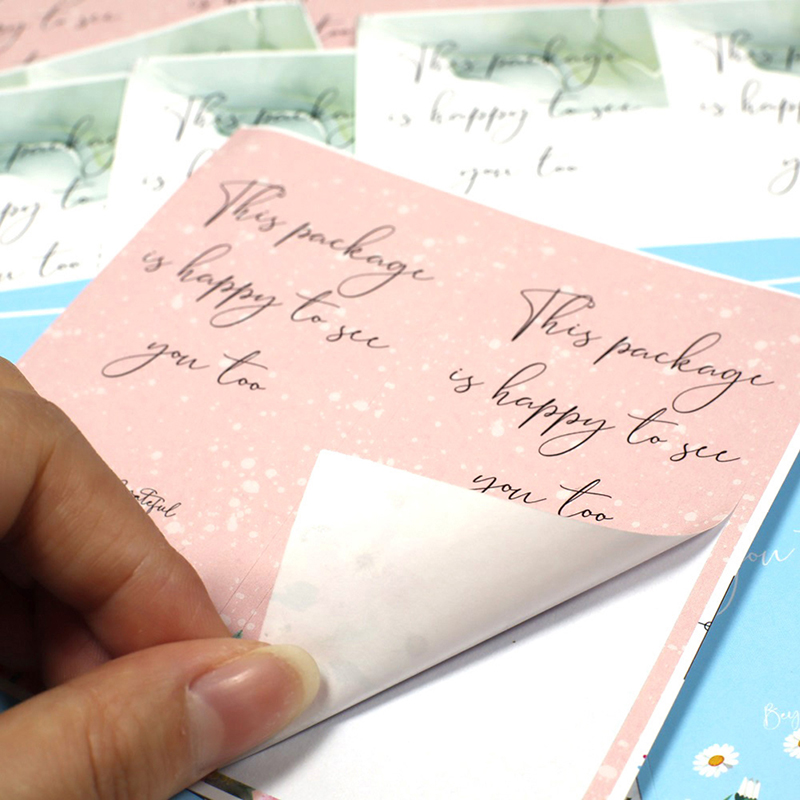 to see
This package
is happy to see
you too
This package
is happy
This package
is
package
happy to
you too
This package
is happy to see
you too
This package
is happy to see
you too
Grateful
you